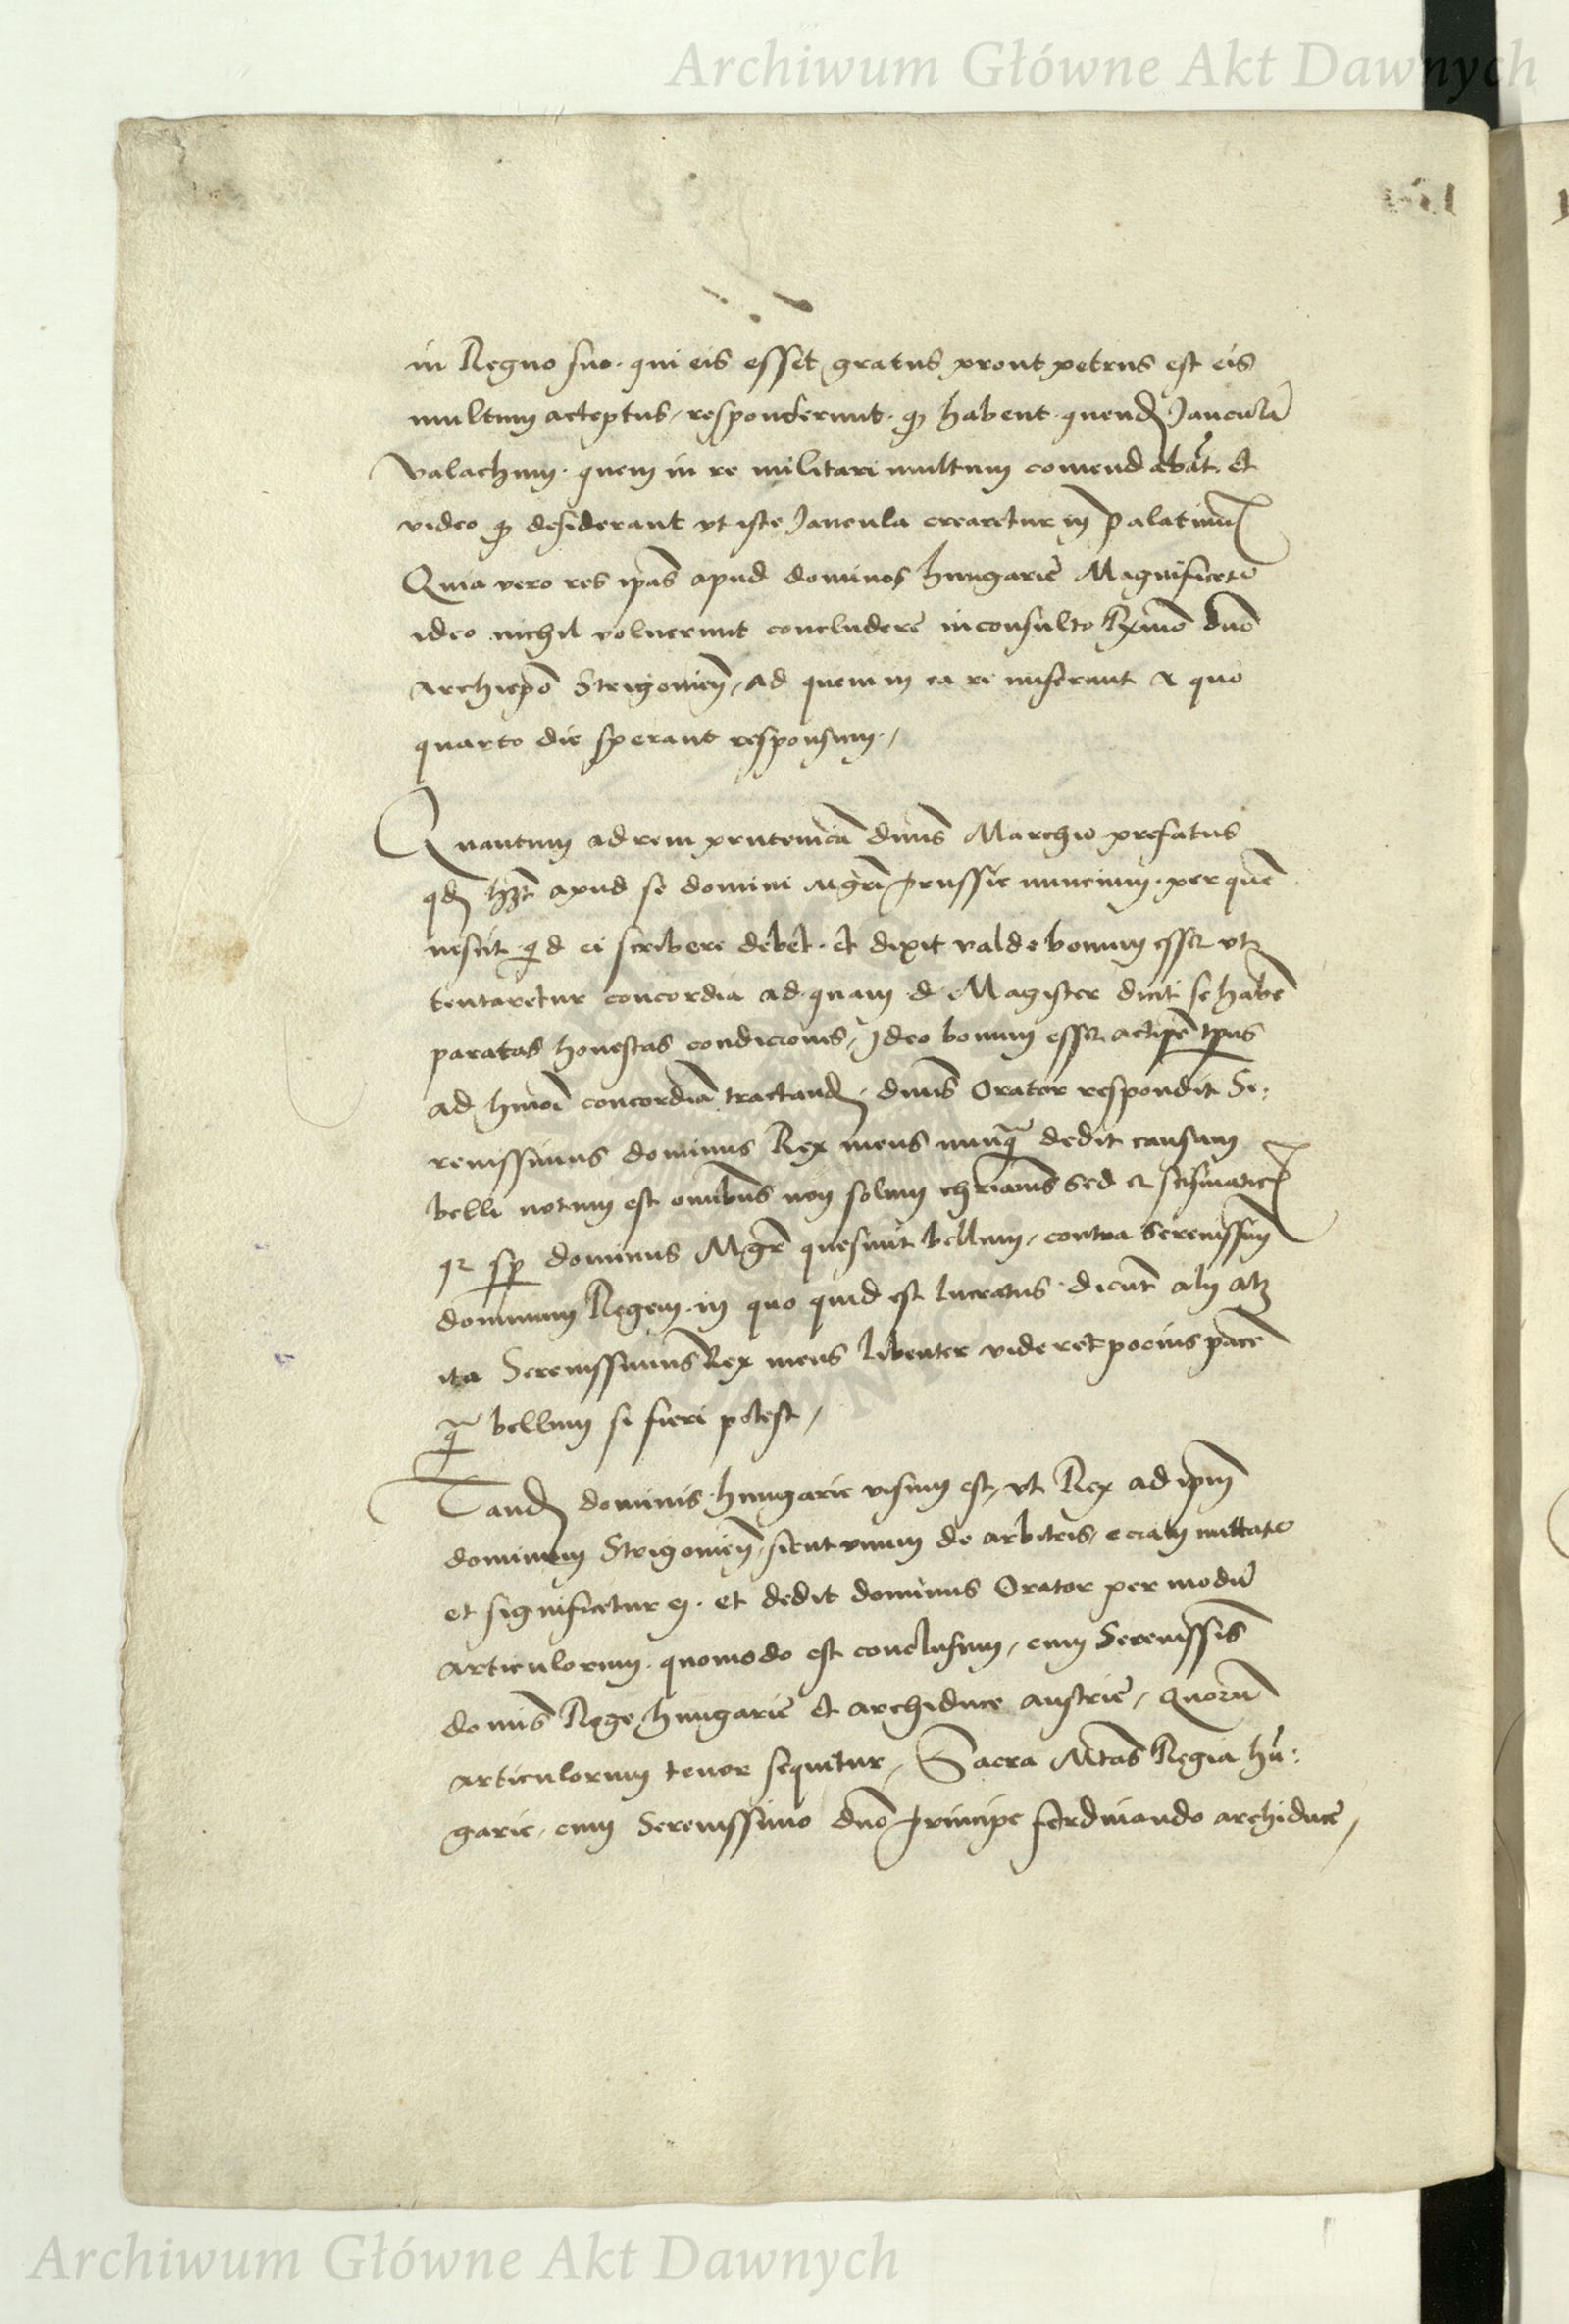 Archiwum Główne Akt Dawnych
in Regno suo. qui eis esset gratus prout petrus est eis
multum acceptus, responderunt. qꝫ habent quendā Janculā
valachum. quem in re militari multum comendabāt. et
video qꝫ desiderant vt iste Jancula crearetur in palatinū
Quia vero res ipas apud dominos hungarie Magnificate
ideo nichil voluerunt concludere inconsulto Rxmo dno
archiepo Strigonień, ad quem in ea re miserunt a quo
quarto die sperant responsum,
Quantum ad rem prutenicā dnus Marchio prefatus
qd hꝫt apud se domini mgri prussie nuncium. per quē
nescit qd ei scribere debet. et dixit valde bonum esset vt
tentaretur concordia ad quam d. Magister dicit se habē
paratas honestas condiciones, Jdeo bonum esset accipe tpus
ad hmoi concordiā tractandā. dnus Orator respondit Se:
renissimus dominus Rex meus nunqꝫ dedit causam
belli notum est omibus non solum chrianis sed et scismaticꝭ
qꝛ sp dominus Mgr quesiuit bellum, contra serenissimū
dominum Regem. in quo quid est lucratus. dicūt alij atqꝫ
ita Serenissimus Rex meus libenter videret pocius pacē
qꝫ bellum si fieri potest,
Tandē dominis hungarie visum est, vt Rex ad ipm
dominum Strigonień, sicut vnum de arbitris, eciam mittate
et significetur ei. et dedit dominus Orator per modū
articulorum. quomodo est conclusum, cum Serenissis
domis Rege hungarie et archiduce austrie, quorū
articulorum tenor sequitur, Sacra Mtas Regia hū:
garie, cum Serenissimo dno principe ferdinando archiduce,
Archiwum Główne Akt Dawnych